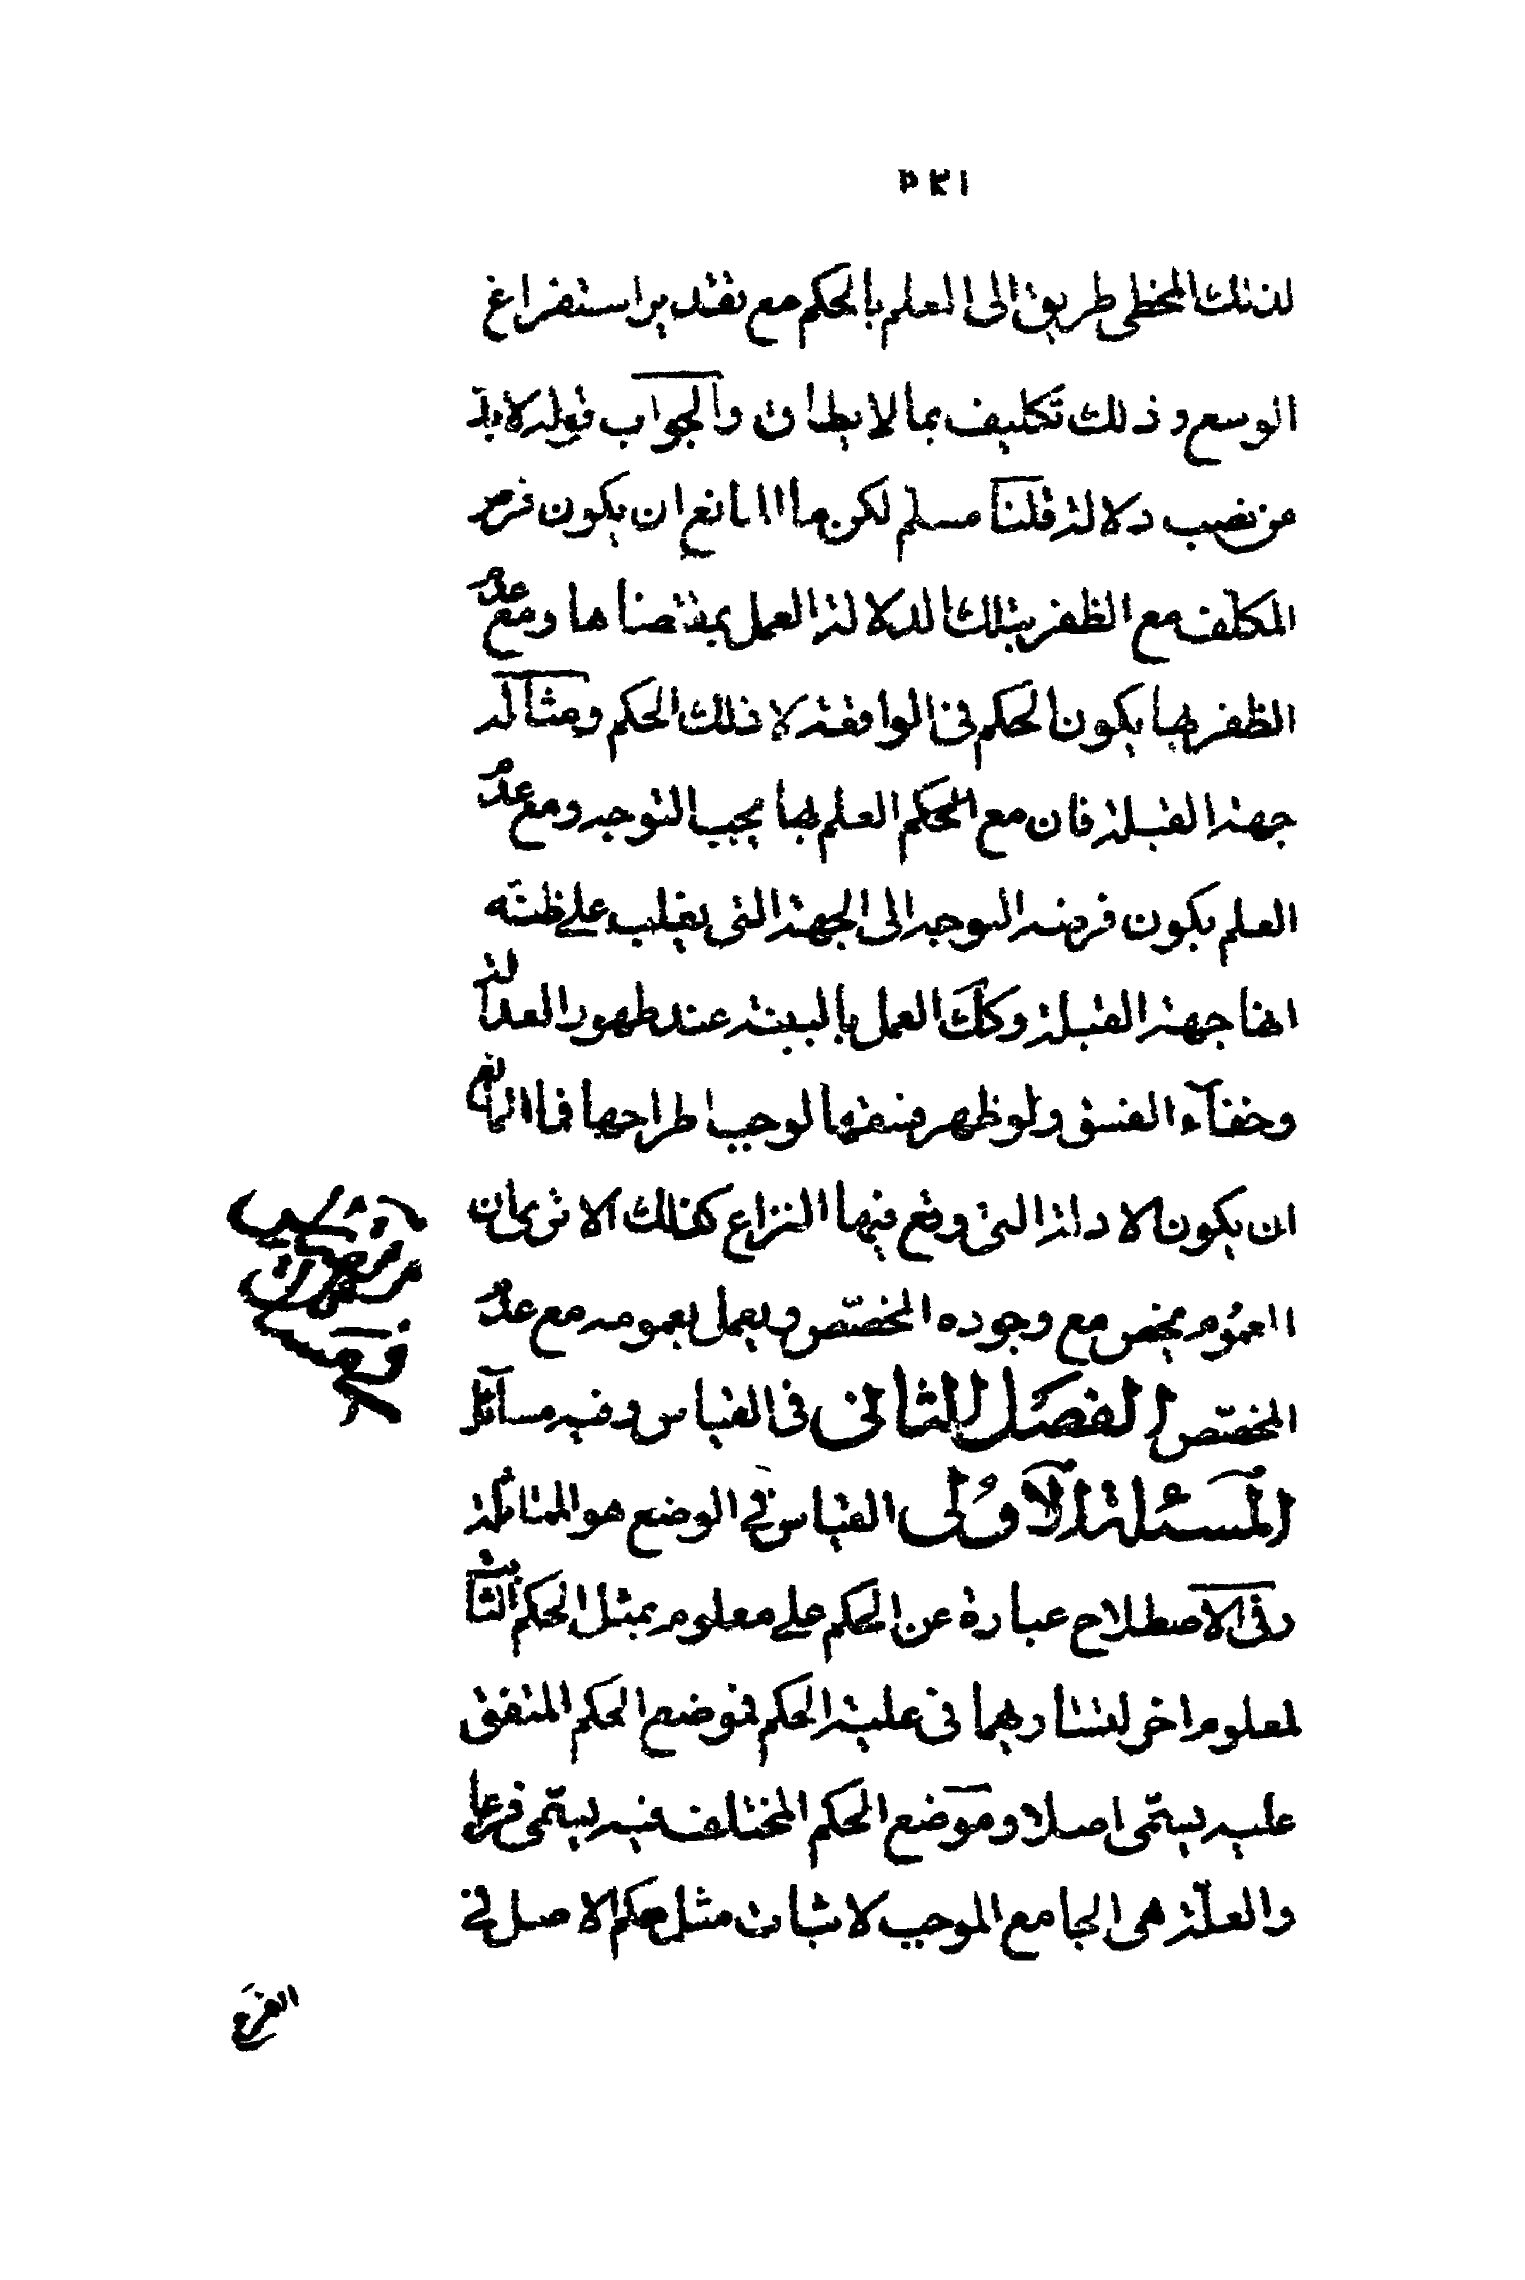 لذلك المخطى طريق الى العلم بالحكم مع تقدير استفراغ
الوسع وذلك تكليف بما لا يطاق والجواب قوله لا بد
من نصب دلالة قلنا مسلم لكن ما المانع ان يكون فرض
المكلف مع الظفر بتلك الدلالة العمل بمقتضاها ومع عدم
الظفر بها يكون الحكم في الواقعة لا ذلك الحكم ومثاله
جهة القبلة فان مع العلم بها يجب التوجه ومع عدم
العلم يكون فرضه التوجه الى الجهة التى يغلب على ظنه
انها جهة القبلة وكك العمل بالبينة عند ظهور العدالة
وخفآء الفسق ولو ظهر فسقها لوجب اطراحها فما المانع
ان يكون الادلة التى وقع فيها النزاع كذلك الا ترى ان
العموم يخص مع وجوده المخصّص ويعمل بعمومه مع عدم
المخصّص الفصل الثانى في القياس وفيه مسآئل
المسئلة الاولى القياس في الوضع هو المماثلة
وفى الاصطلاح عبارة عن الحكم على معلوم بمثل الحكم الثابت
لمعلوم اخر لتساويهما فى علية الحكم فموضع الحكم المتفق
عليه يسمّى اصلا وموضع الحكم المختلف فيه يسمّى فرعا
والعلّة هى الجامع الموجب لاثبات مثل حكم الاصل في
الفرع